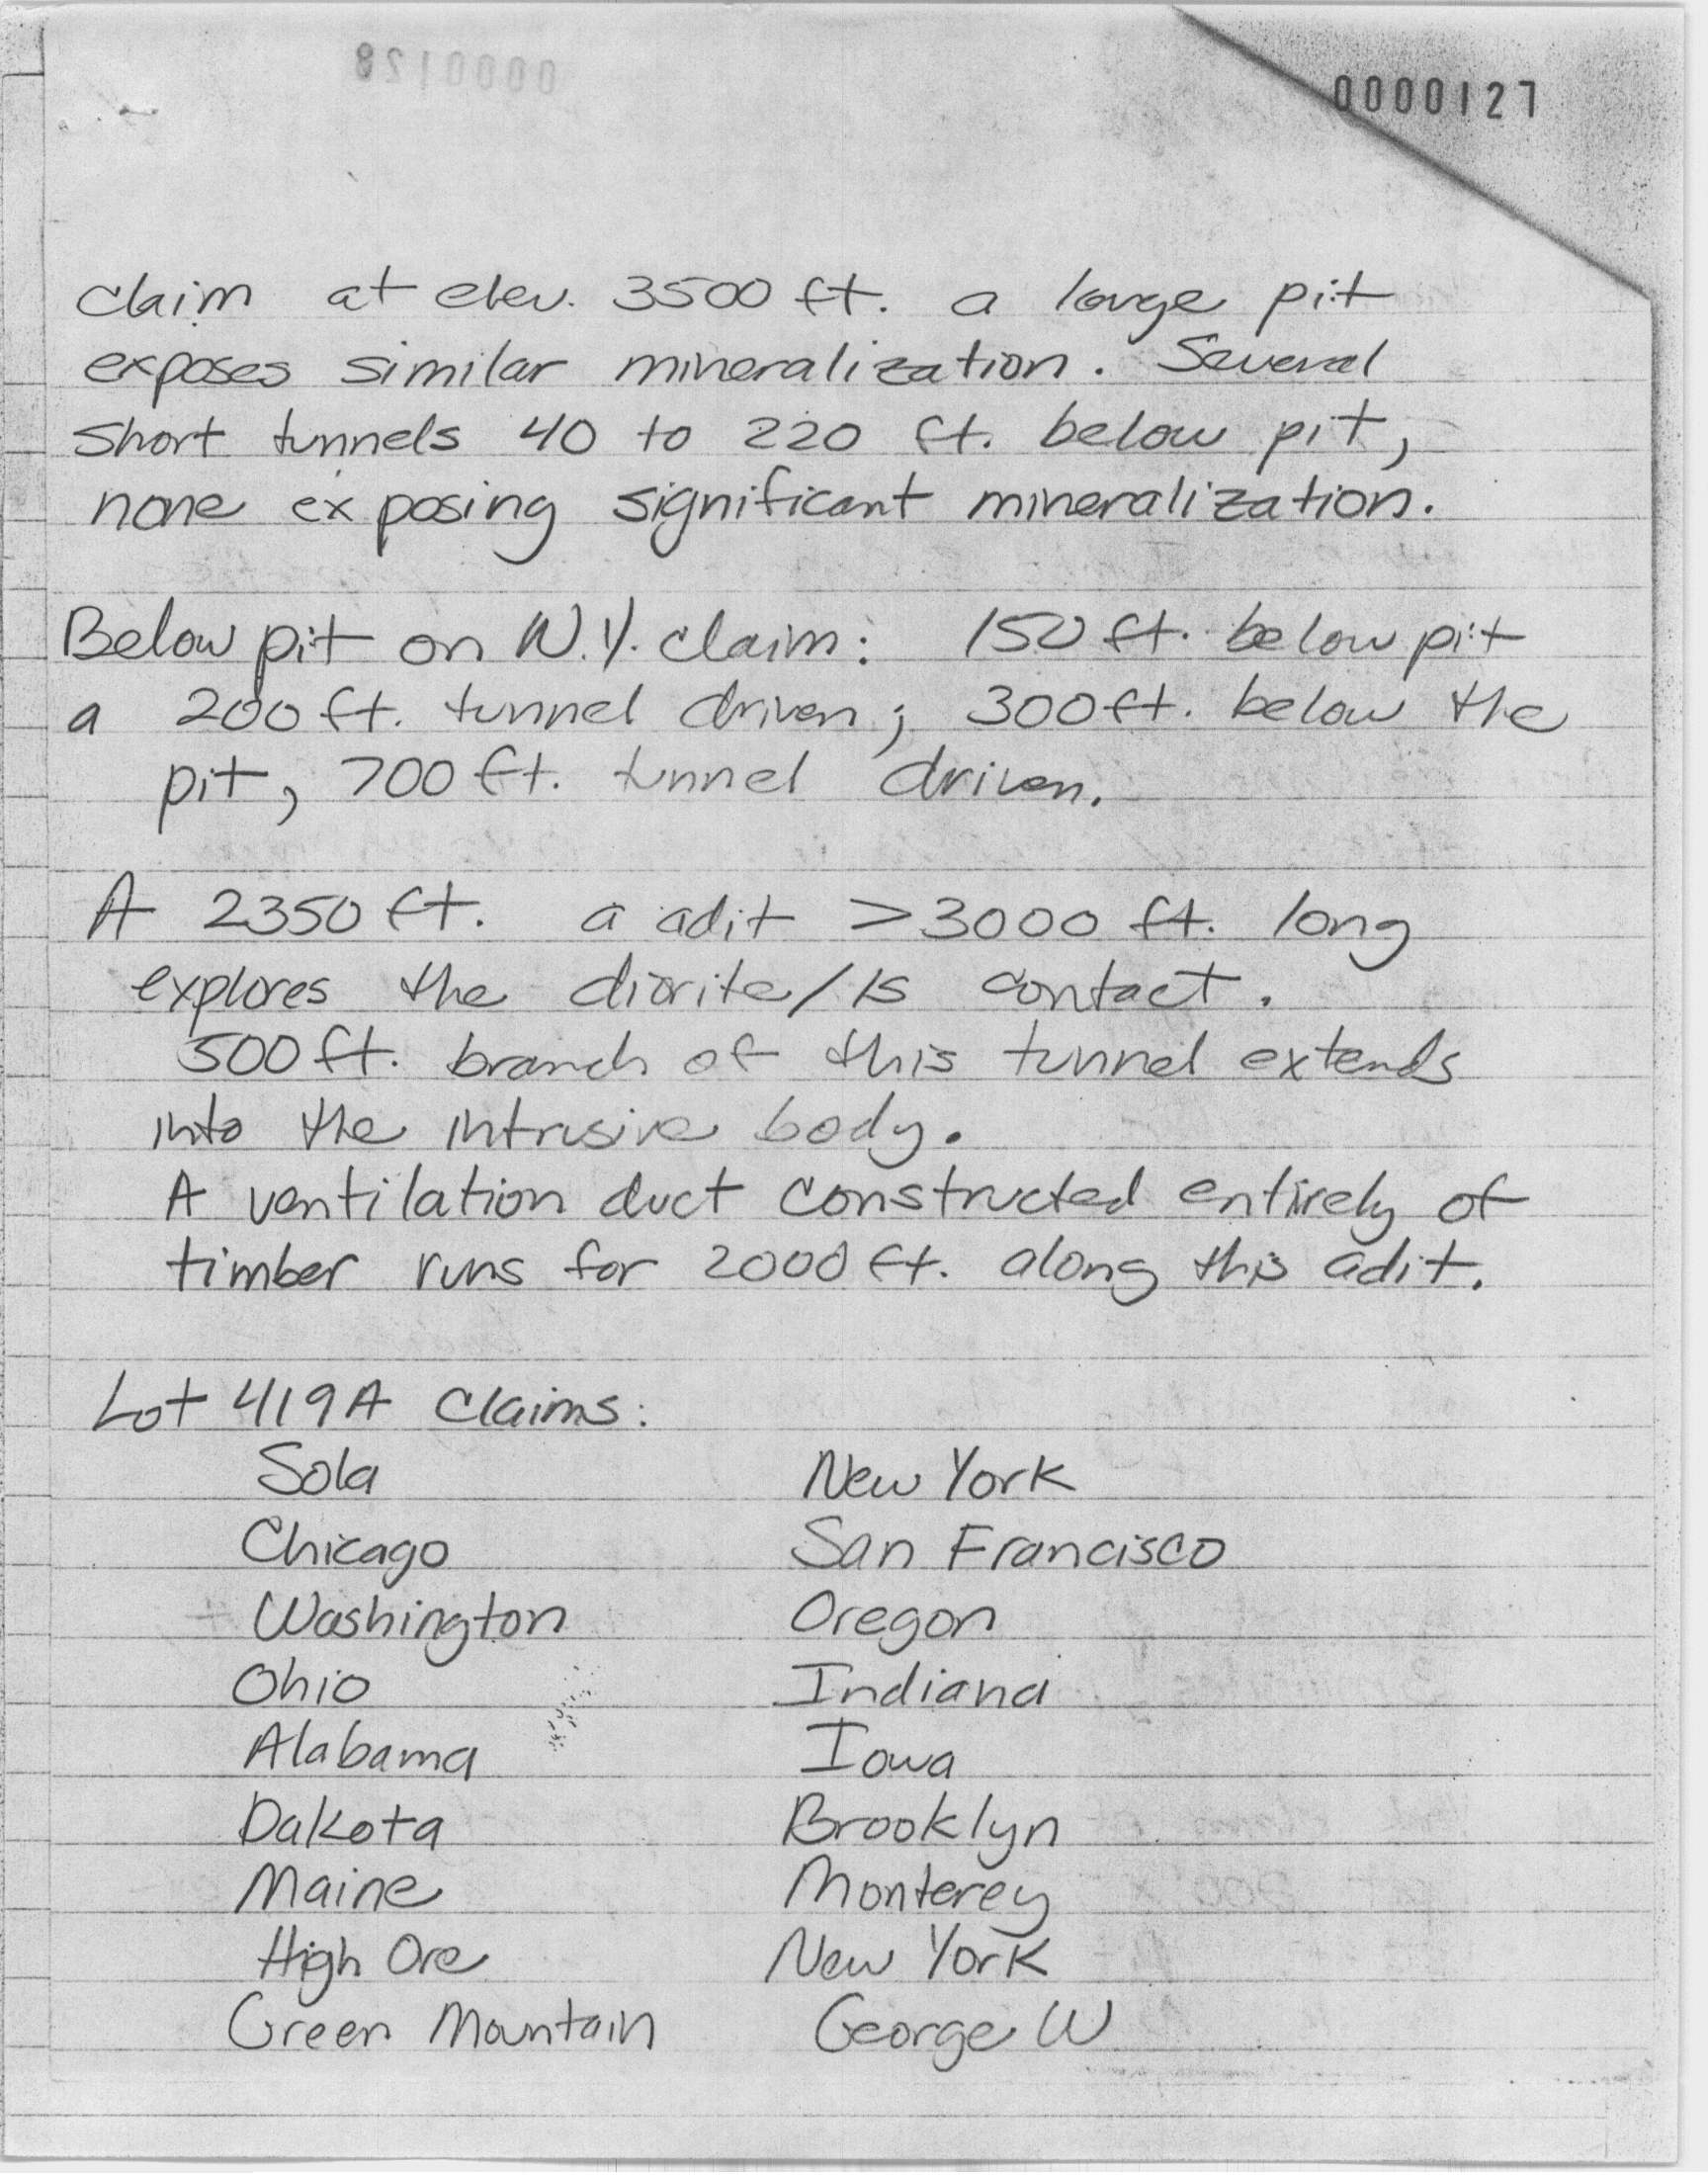 0000128
0000127
claim at elev. 3500 ft. a large pit
exposes similar mineralization. Several
short tunnels 40 to 220 ft. below pit,
none exposing significant mineralization.
Below pit on N.Y. claim: 150 ft. below pit
a 200 ft. tunnel driven; 300 ft. below the
pit, 700 ft. tunnel driven.
A 2350 ft. a adit >3000 ft. long
explores the diorite/ls contact.
500 ft. branch of this tunnel extends
into the intrusive body.
A ventilation duct constructed entirely of
timber runs for 2000 ft. along this adit.
Lot 419A Claims:
Sola New York
Chicago San Francisco
Washington Oregon
Ohio Indiana
Alabama Iowa
Dakota Brooklyn
Maine Monterey
High Ore New York
Green Mountain George W